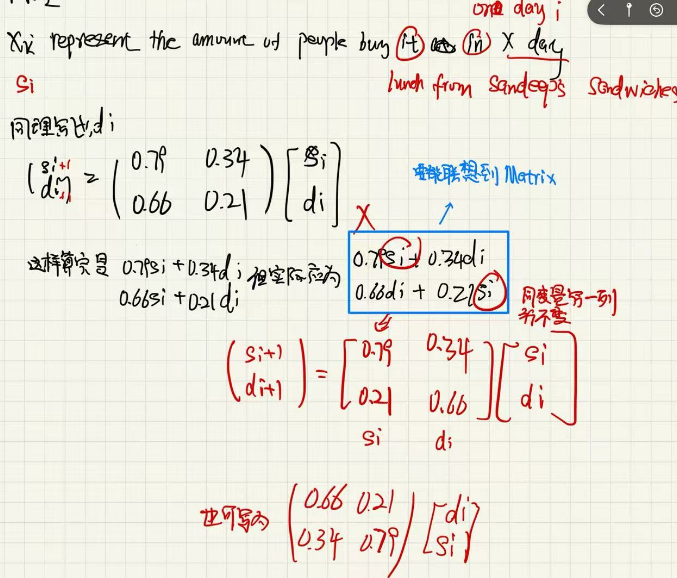 one day i
Xi represent the amount of people buy it in X day
si
lunch from Sandeep's Sandwiches
同理写出di
(si+1 di+1) = (0.79 0.34 0.66 0.21) [si di]
要能联想到 Matrix
X
这样算完是 0.79si + 0.34di 但实际应为 0.79si + 0.34di
0.66si + 0.21di 0.66di + 0.21si
同变量写一列
并不变
(si+1 di+1) = [0.79 0.34 0.21 0.66] [si di]
si di
也可写为 (0.66 0.21 0.34 0.79) [di si]